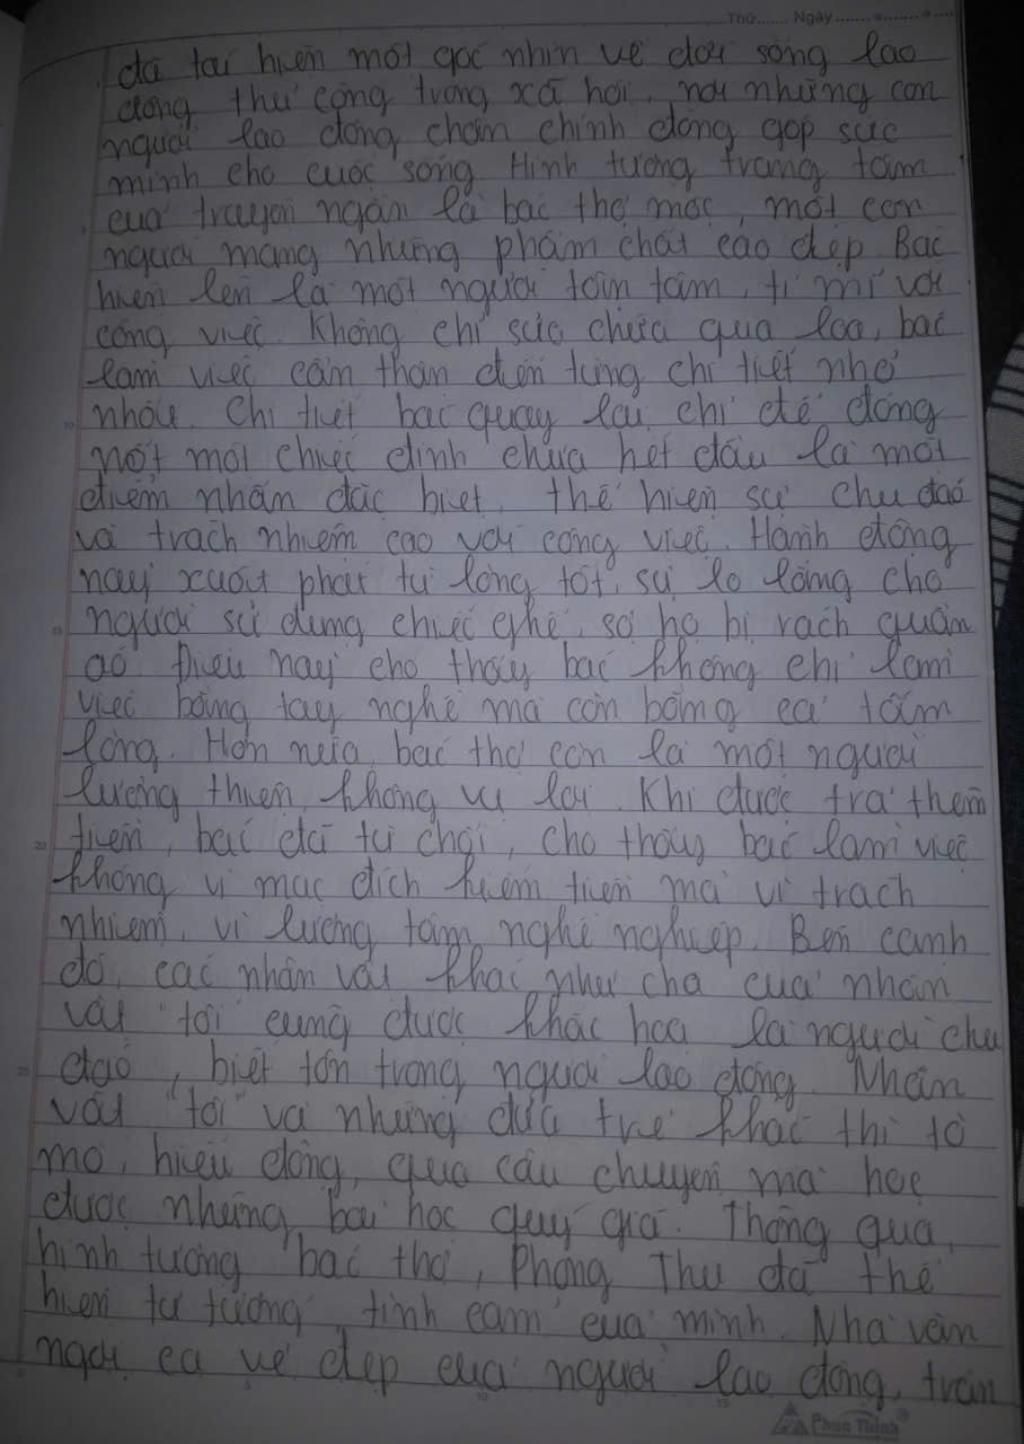 Thứ...... Ngày...............
đã tái hiện một góc nhìn về đời sống lao
động thủ công trong xã hội, nơi những con
người lao động chân chính đóng góp sức
mình cho cuộc sống Hình tượng trung tâm
của truyện ngắn là bác thợ mộc, một con
người mang những phẩm chất cao đẹp Bác
hiện lên là một người tận tâm, tỉ mỉ với
công việc. Không chỉ sửa chữa qua loa, bác
làm việc cẩn thận đến từng chi tiết nhỏ
nhất. Chi tiết bác quay lại chỉ để đóng
nốt một chiếc đinh chưa hết đầu là một
điểm nhấn đặc biệt, thể hiện sự chu đáo
và trách nhiệm cao với công việc. Hành động
này xuất phát từ lòng tốt, sự lo lắng cho
người sử dụng chiếc ghế, sợ họ bị rách quần
áo. Điều này cho thấy bác không chỉ làm
việc bằng tay nghề mà còn bằng cả tấm
lòng. Hơn nữa, bác thợ còn là một người
lương thiện, không vụ lợi. Khi được trả thêm
tiền, bác đã từ chối, cho thấy bác làm việc
không vì mục đích kiếm tiền mà vì trách
nhiệm, vì lương tâm nghề nghiệp. Bên cạnh
đó, các nhân vật khác như cha của nhân
vật "tôi" cũng được khắc họa là người chu
đáo, biết tôn trọng người lao động. Nhân
vật "tôi" và những đứa trẻ khác thì tò
mò, hiếu động, qua câu chuyện mà học
được những bài học quý giá. Thông qua
hình tượng bác thợ, Phong Thu đã thể
hiện tư tưởng, tình cảm của mình. Nhà văn
ngợi ca vẻ đẹp của người lao động, trân